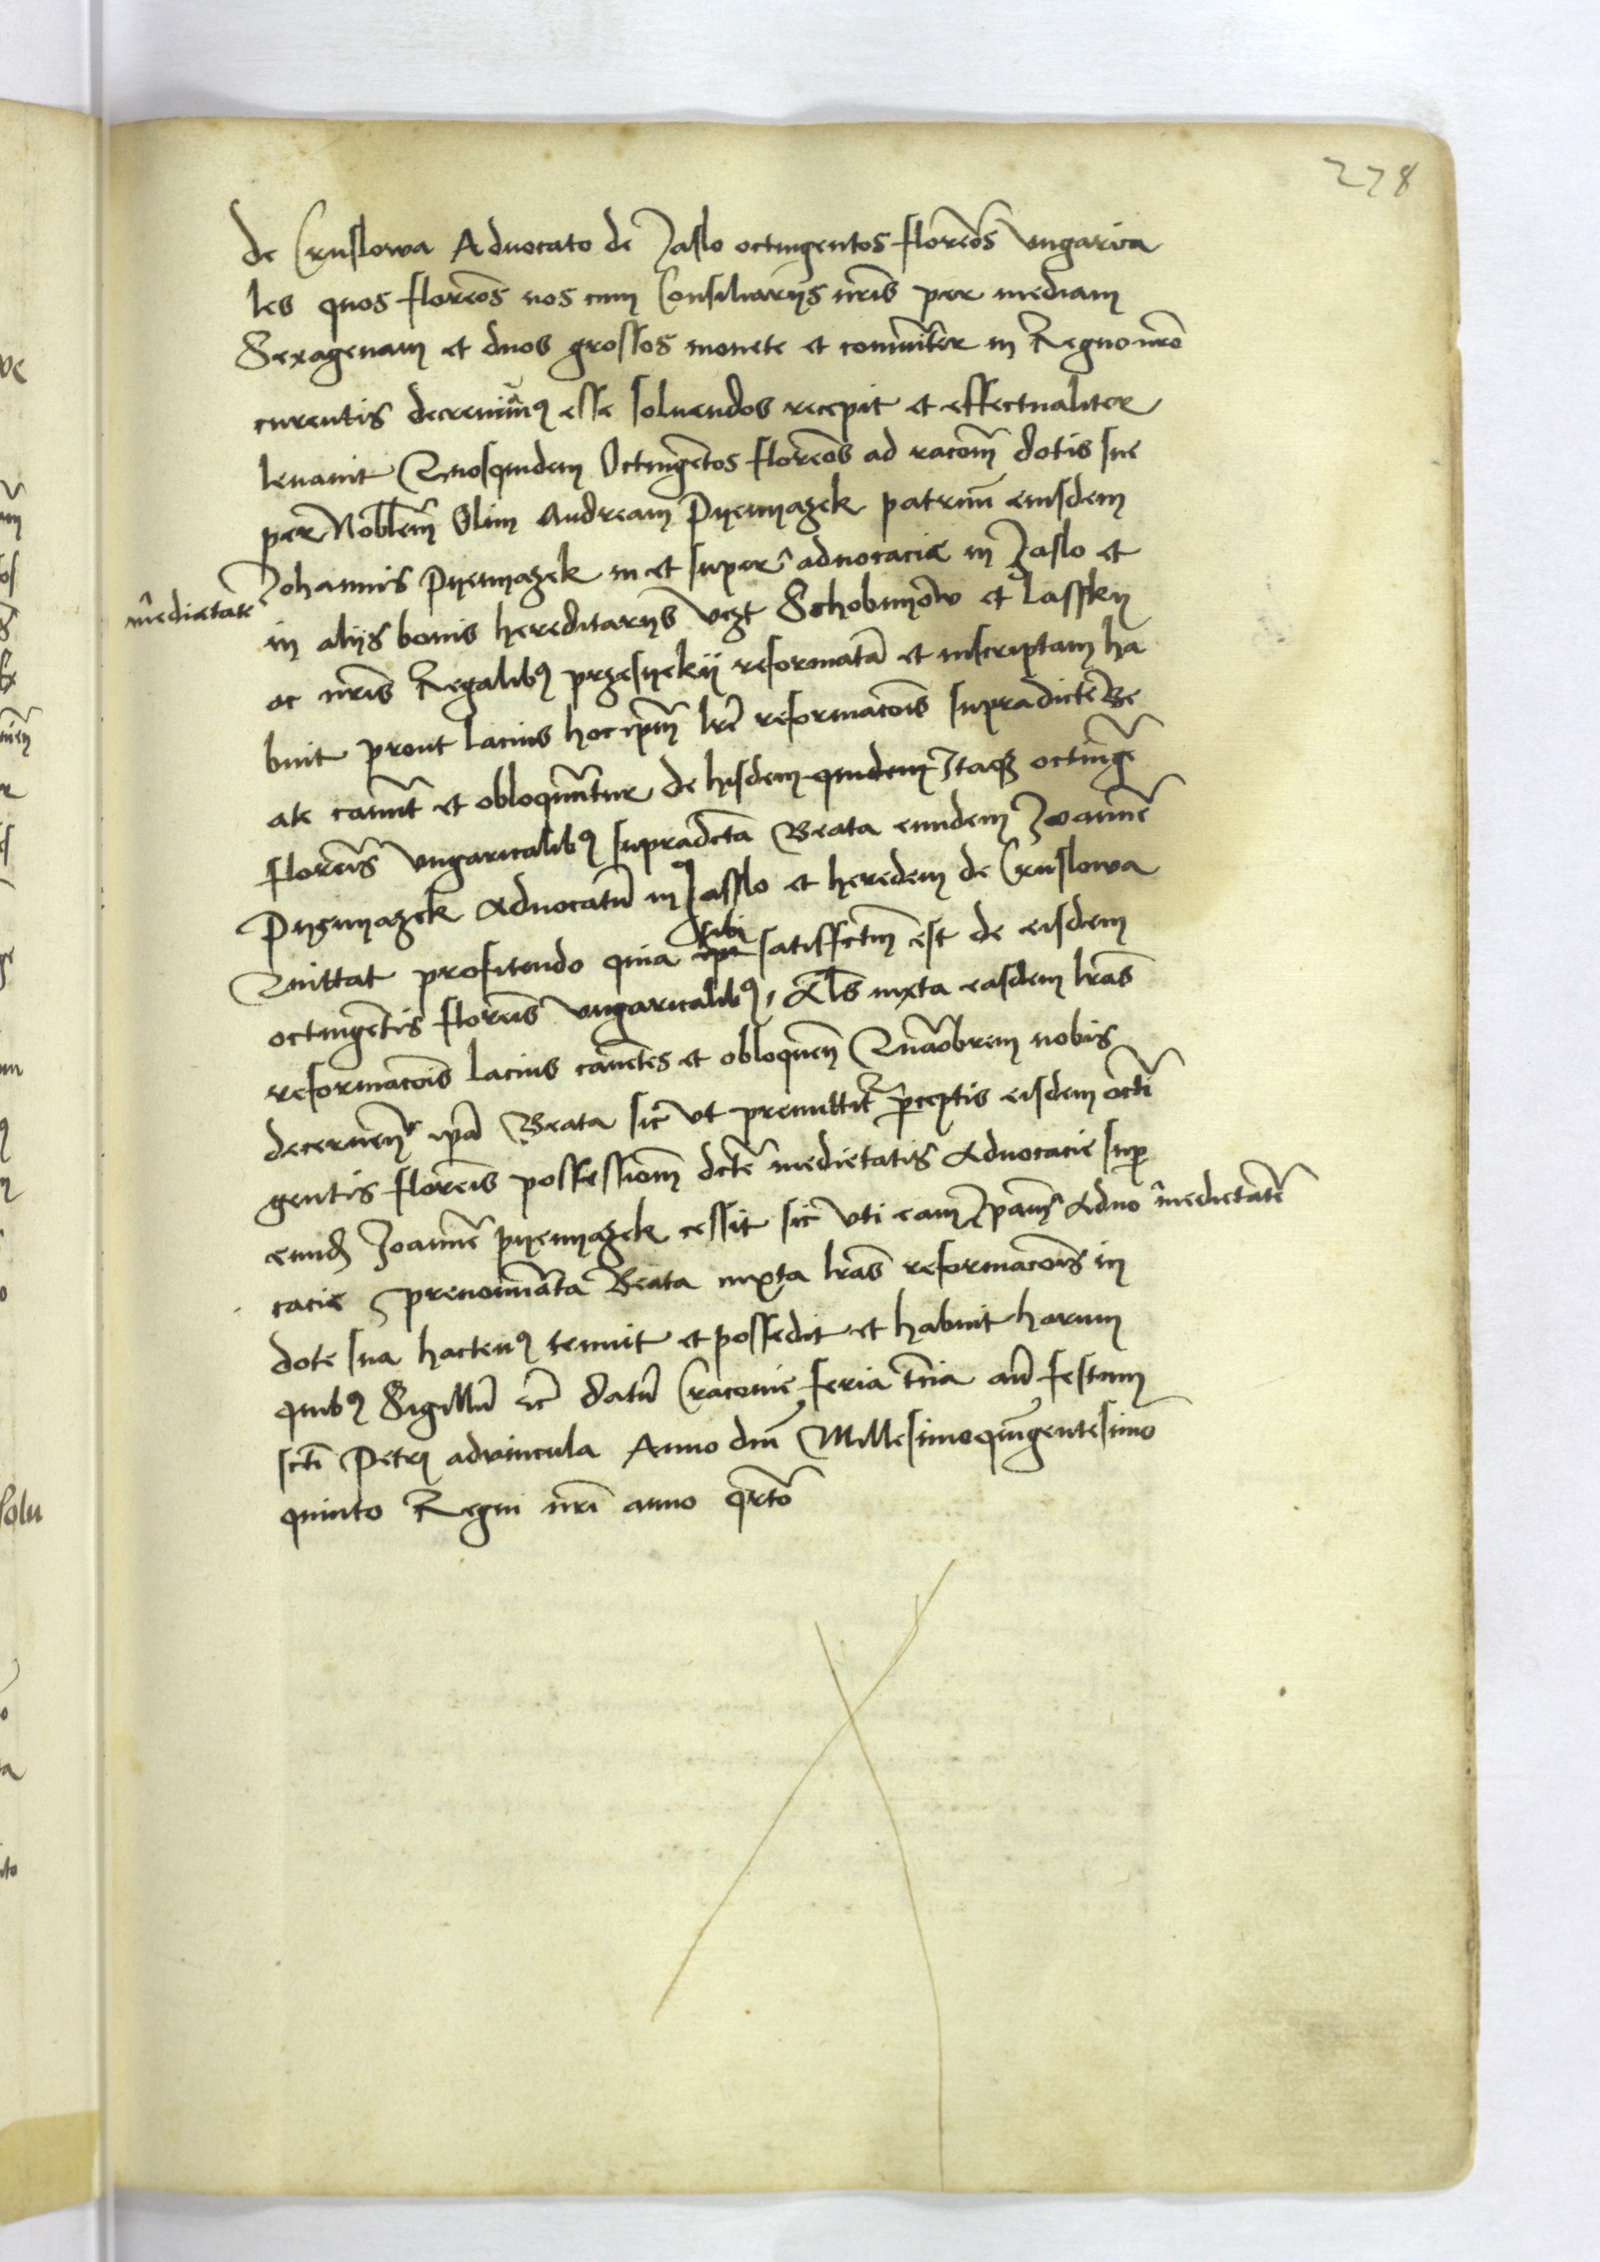 278
de Cruslowa Advocato de Jaslo octingentos florenos ungarica
les quos florenos nos cum Consiliariis nris per mediam
Sexagenam et duos grossos monete et commniter in Regno nro
currentis decrevimus esse solvendos recepit et effectualiter
levavit Quosquidem Octingentos florenos ad racom dotis sue
per Noblem Olim Andream Pyenyazek patruu eiusdem
Johannis Pyenyazek in et super advocacie in Jaslo et
medietate
in alijs bonis hereditarijs vczt Schobnyow et Lassky
ac nris Regalibus przesyekij reformata et inscriptam ha
buit prout lacius hoc ipm lre reformacois supradicte Be
ate canut et obloquntur de hisdem quidem Itaqz octinge
florenis ungaricalibus supradicta Beata eundem Joanne
Pyenyazek Advocatu in Jasslo et heredem de Cruslowa
Quittat profitendo quia sibi satisfctm est de eisdem
octingentis florenis ungaricalibus, Als iuxta easdem lras
reformacois lacius canetes et obloquen Quaobrem nobis
decernen ipa Beata sic ut premittit perceptis eisdem octi
gentis florenis possessiom dcte medietatis Advocacie sup
eund Joanne Pyenyazek cessit sic uti eam ipam Advo medietate
cacie prenomiata Beata iuxta lras reformacois in
dote sua hactenus tenuit et possedit et habuit harum
quibus Sigillu etc datu Cracovie feria tcia an festum
scti Petri advincula Anno dni Millesimoquingentesimo
quinto Regni nri anno qrto